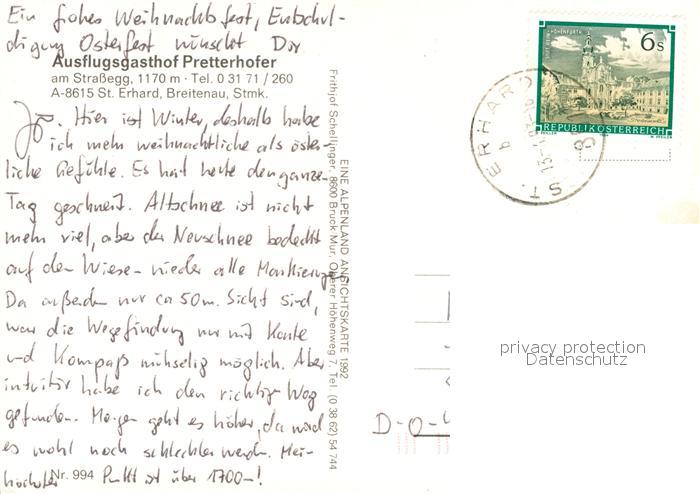 Ein frohes Weihnachtsfest, Entschul-
digung Osterfest wünscht Dir
Ausflugsgasthof Pretterhofer
am Straßegg, 1170 m · Tel. 0 31 71 / 260
A-8615 St. Erhard, Breitenau, Stmk.
Hier ist Winter, deshalb habe
ich mehr weihnachtliche als öster-
liche Gefühle. Es hat heute den ganzen
Tag geschneit. Altschnee ist nicht
mehr viel, aber der Neuschnee bedeckt
auf den Wiesen wieder alle Markierungen
Da außerdem nur ca 50m Sicht sind,
war die Wegefindung nur mit Karte
und Kompaß mühselig möglich. Aber
intuitiv habe ich den richtigen Weg
gefunden. Morgen geht es höher, da wird
es wohl noch schlechter werden. Mein
höchster Punkt ist über 1700m!
Nr. 994
Frithjof Schellinger, 8600 Bruck/Mur, Oberer Höhenweg 7, Tel. (0 38 62) 54 7 44
EINE ALPENLAND ANSICHTSKARTE 1992
STIFT REIN-HOHENFURTH
6 S
REPUBLIK ÖSTERREICH
ST. ERHARD
b
privacy protection
Datenschutz
D-O-4